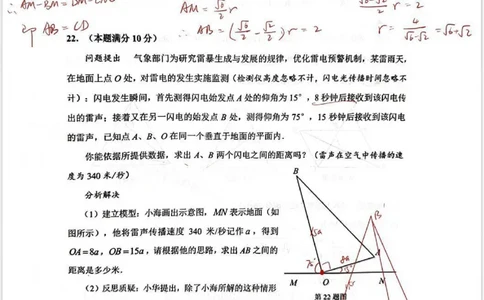 ∴ AM-BM=DM-CM
即 AB=CD
AM=√6/2 r
∴ AB=(√6/2-√2/2)r=2
r=4/(√6-√2)=√6+√2
22.（本题满分10分）
问题提出 气象部门为研究雷暴生成与发展的规律，优化雷电预警机制，某雷雨天，
在地面上点O处，对雷电的发生实施监测（检测仪高度忽略不计，闪电光传播时间忽略不
计）；闪电发生瞬间，首先测得闪电始发点A处的仰角为15°，8秒钟后接收到该闪电传
出的雷声；接着又在另一闪电的始发点B处，测得仰角为75°，15秒钟后接收到该闪电
的雷声，已知点A、B、O在同一个垂直于地面的平面内.
你能依据所提供数据，求出A、B两个闪电之间的距离吗？（雷声在空气中传播的速
度为340米/秒）
分析解决
（1）建立模型：小海画出示意图，MN表示地面（如
图所示），他将雷声传播速度340米/秒记作a，得到
OA=8a，OB=15a，请根据他的思路，求出AB之间的
距离是多少米.
（2）反思质疑：小华提出，除了小海所解的这种情形
B
15a
75°
8a
15°
A
M
O
N
B
A
第22题图